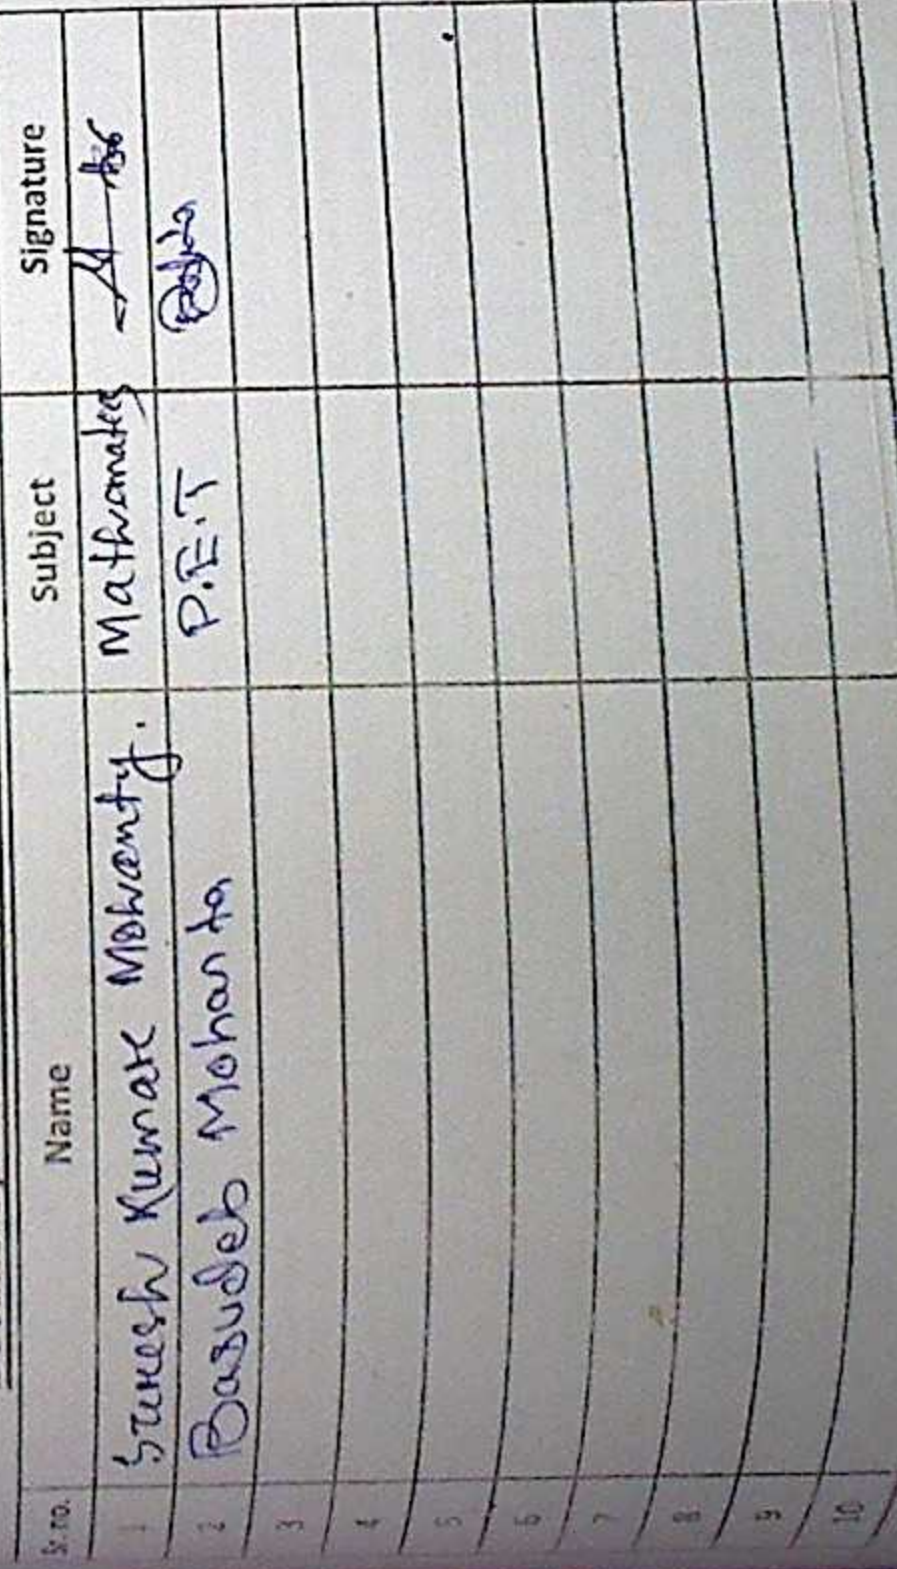 Sr. no. Name Subject Signature
1 Suresh Kumar Mohanty. Mathematics
2 Basudeb Mohanta P.E.T
3
4
5
6
7
8
9
10